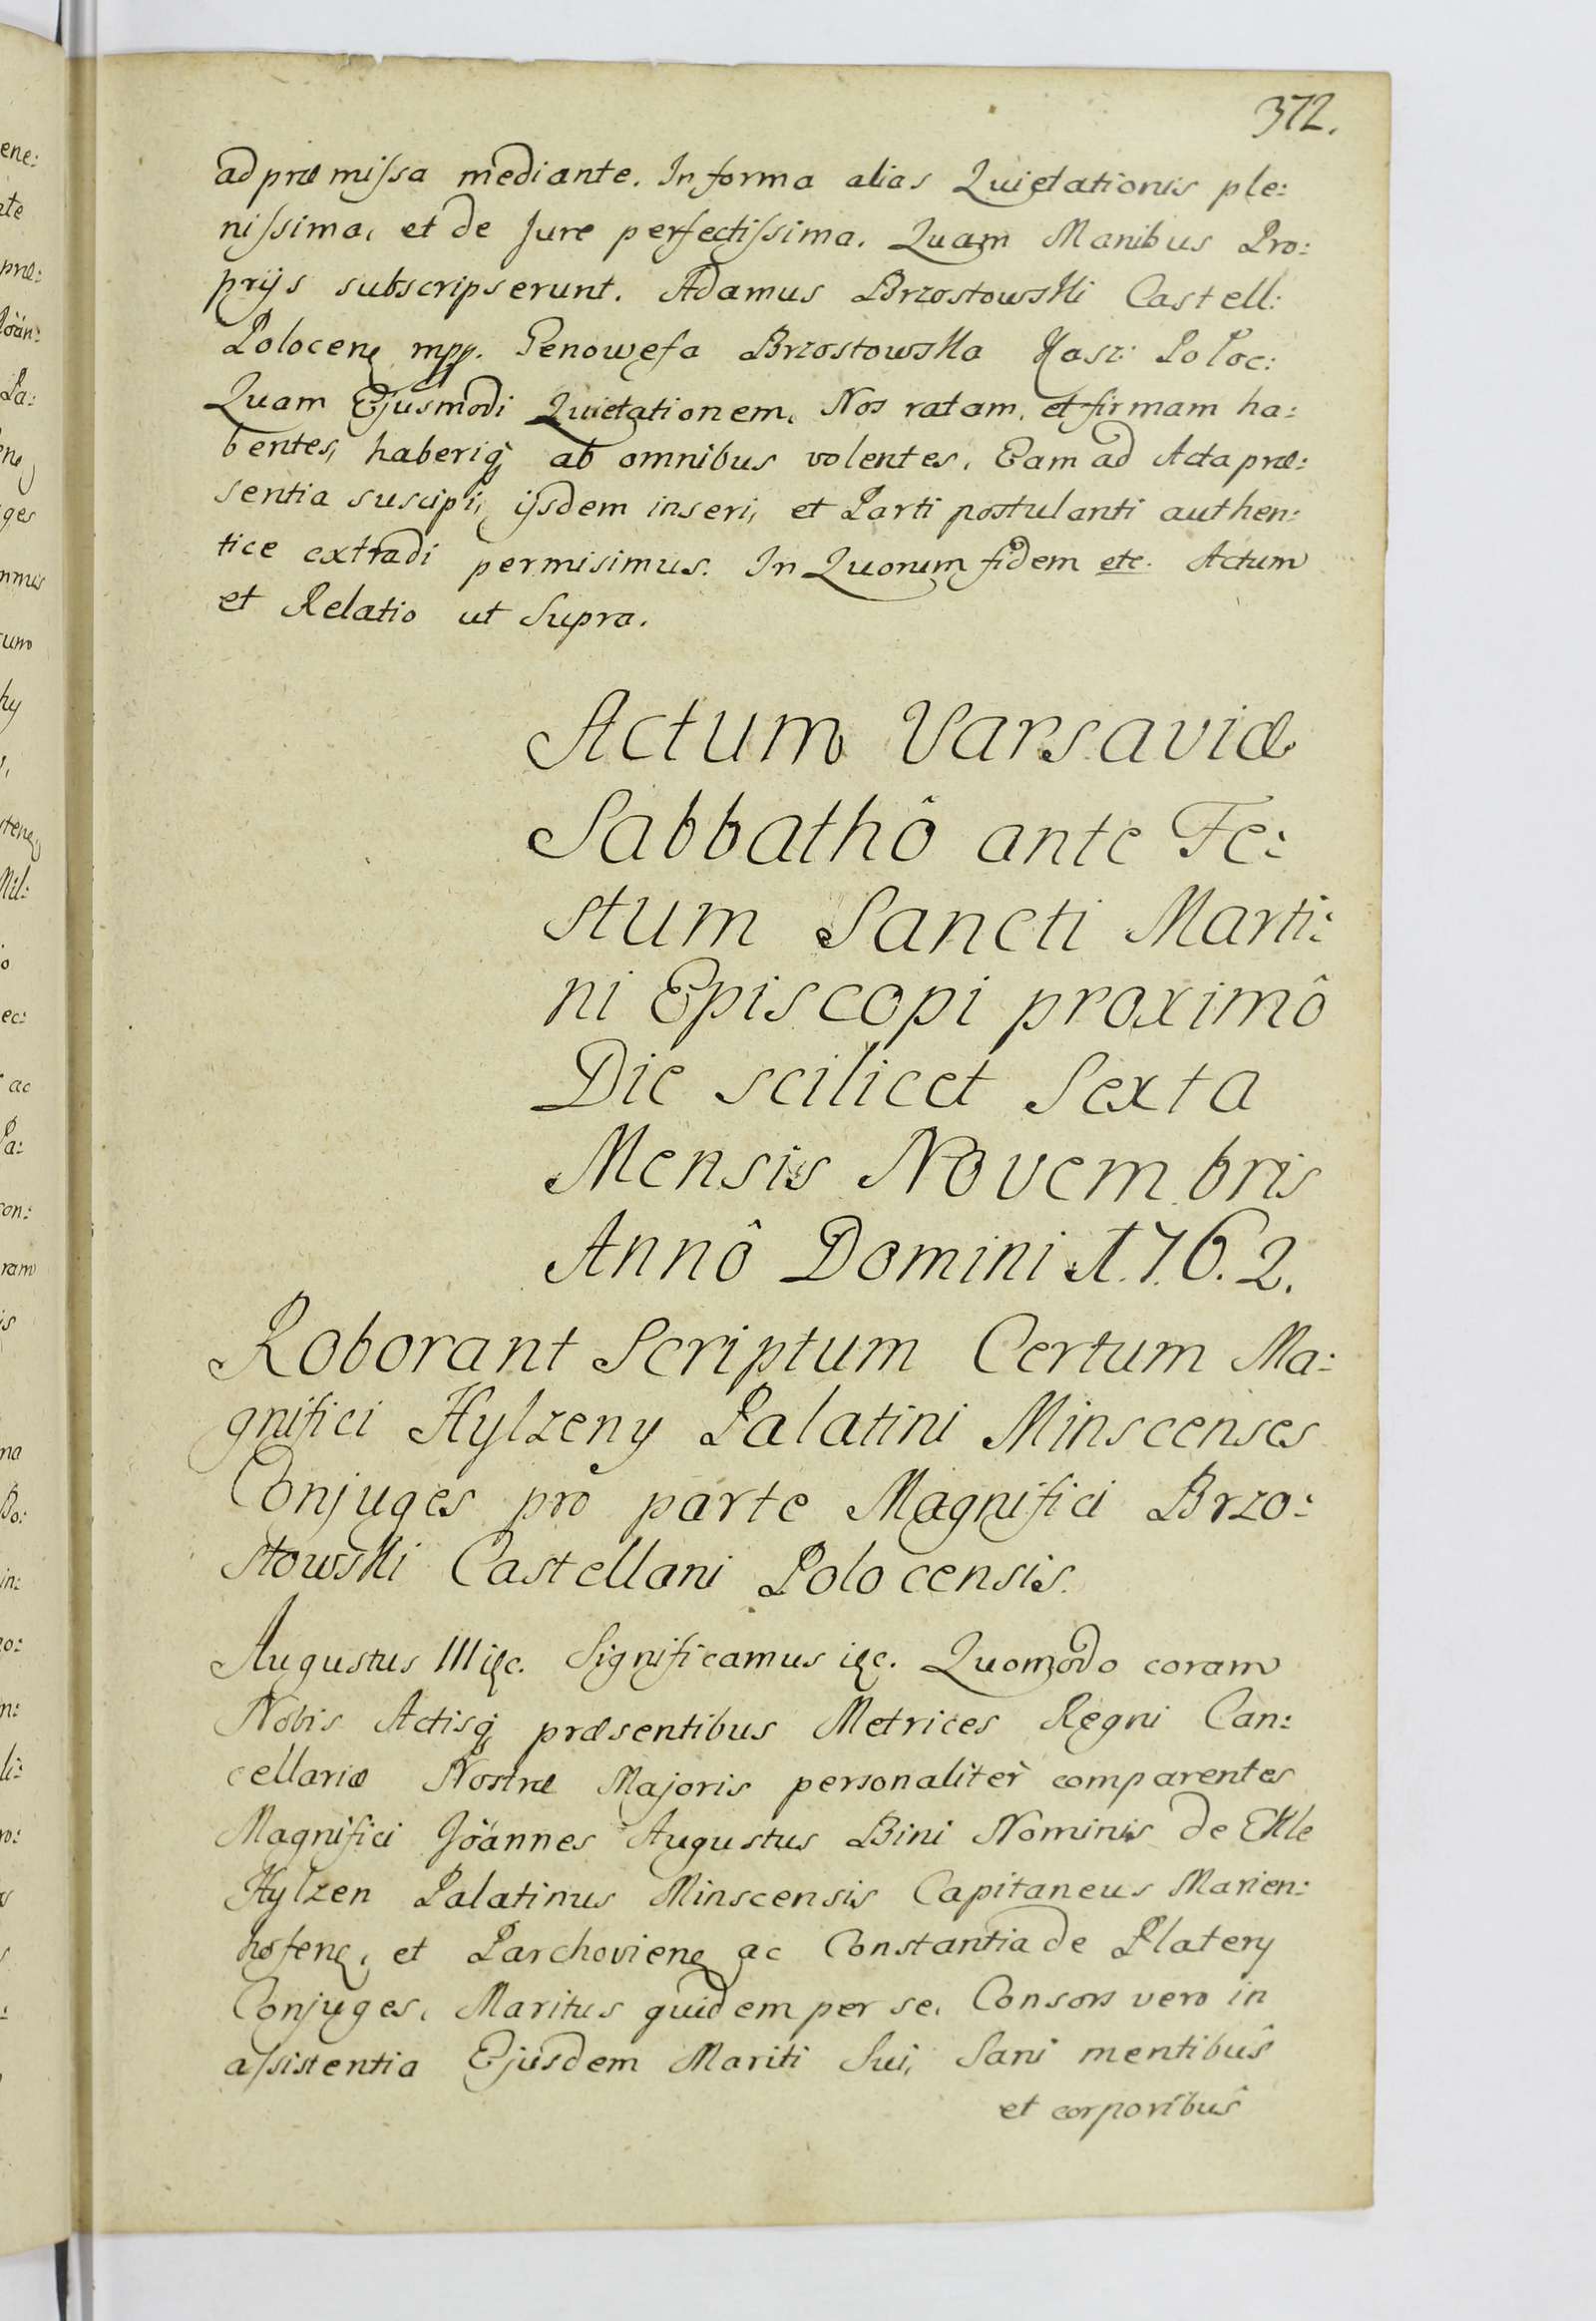 372.
ad præmissa mediante. In forma alias Quietationis ple:
nissima, et de Jure perfectissima. Quam Manibus Pro:
prijs subscripserunt. Adamus Brzostowski Castell:
Polocen. mpp. Genowefa Brzostowska Kasz: Poloc:
Quam Ejusmodi Quietationem, Nos ratam, et firmam ha:
bentes, haberiq, ab omnibus volentes, Eam ad Acta præ:
sentia suscipi, ijsdem inseri, et Parti postulanti authen:
tice extradi permisimus. In Quorum fidem etc. Actum
et Relatio ut Supra.
Actum Varsaviæ
Sabbathô ante Fe:
stum Sancti Marti:
ni Episcopi proximô
Die scilicet Sexta
Mensis Novembris
Annô Domini 1.7.6.2.
Roborant Scriptum Certum Ma:
gnifici Hylzeny Palatini Minscenses
Conjuges pro parte Magnifici Brzo:
stowski Castellani Polocensis.
Augustus III etc. Significamus etc. Quomodo coram
Nobis Actisq, præsentibus Metrices Regni Can:
cellariæ Nostræ Majoris personaliter comparentes
Magnifici Joännes Augustus Bini Nominis de Ekle
Hylzen Palatinus Minscensis Capitaneus Marien:
hofen, et Parchovien ac Constantia de Platery
Conjuges, Maritus quidem per se, Consors vero in
assistentia Ejusdem Mariti Sui, Sani mentibus
et corporibus